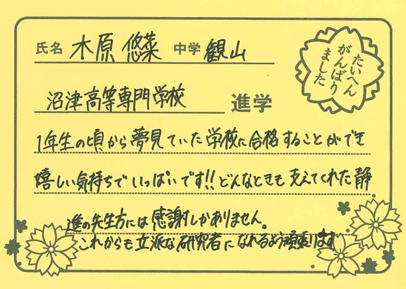 氏名 木原 悠菜 中学 観山
たいへん
がんばり
ました
沼津高等専門学校 進学
1年生の頃から夢見ていた学校に合格することができ
嬉しい気持ちでいっぱいです!!どんなときも支えてくれた静
進の先生方には感謝しかありません。
これからも立派な研究者になれるよう頑張ります